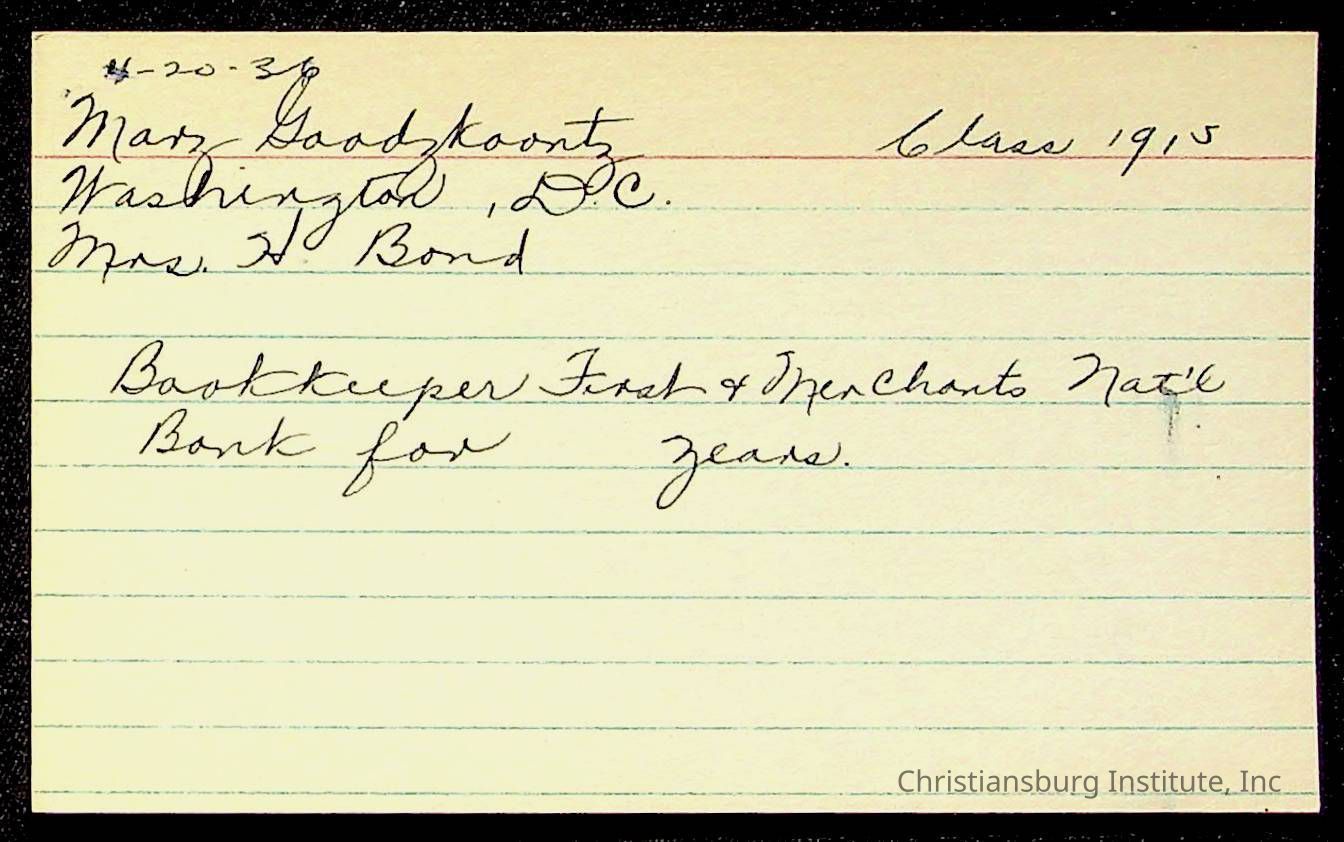 4-20-36
Mary Goodykoontz Class 1915
Washington, D.C.
Mrs. H Bond
Bookkeeper First & Merchants Nat'l
Bank for years.
Christiansburg Institute, Inc